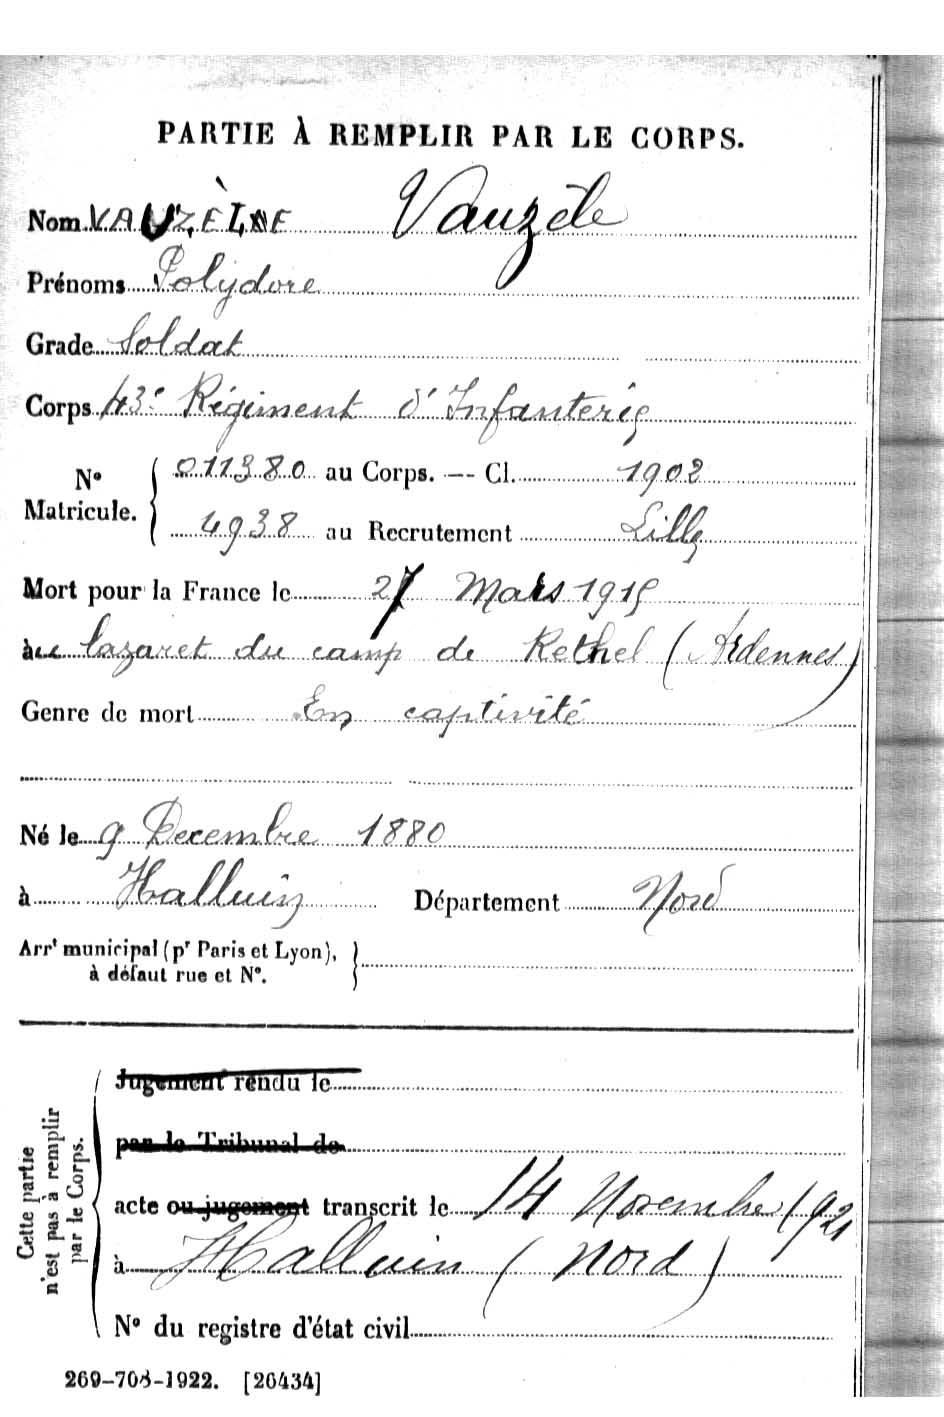 PARTIE À REMPLIR PAR LE CORPS.
Nom VAUZÈLE Vauzèle
Prénoms Polydore
Grade Soldat
Corps 43e Régiment d'Infanterie
N° Matricule. 011380 au Corps. — Cl. 1902
4938 au Recrutement Lille
Mort pour la France le 27 Mars 1915
au lazaret du camp de Rethel (Ardennes)
Genre de mort En captivité
Né le 9 Decembre 1880
à Halluin Département Nord
Arrt municipal (pr Paris et Lyon),
à défaut rue et N°.
Cette partie
n'est pas à remplir
par le Corps.
Jugement rendu le
par le Tribunal de
acte ou jugement transcrit le 14 Novembre 1921
à Halluin (Nord)
N° du registre d'état civil
269-708-1922. [26434]